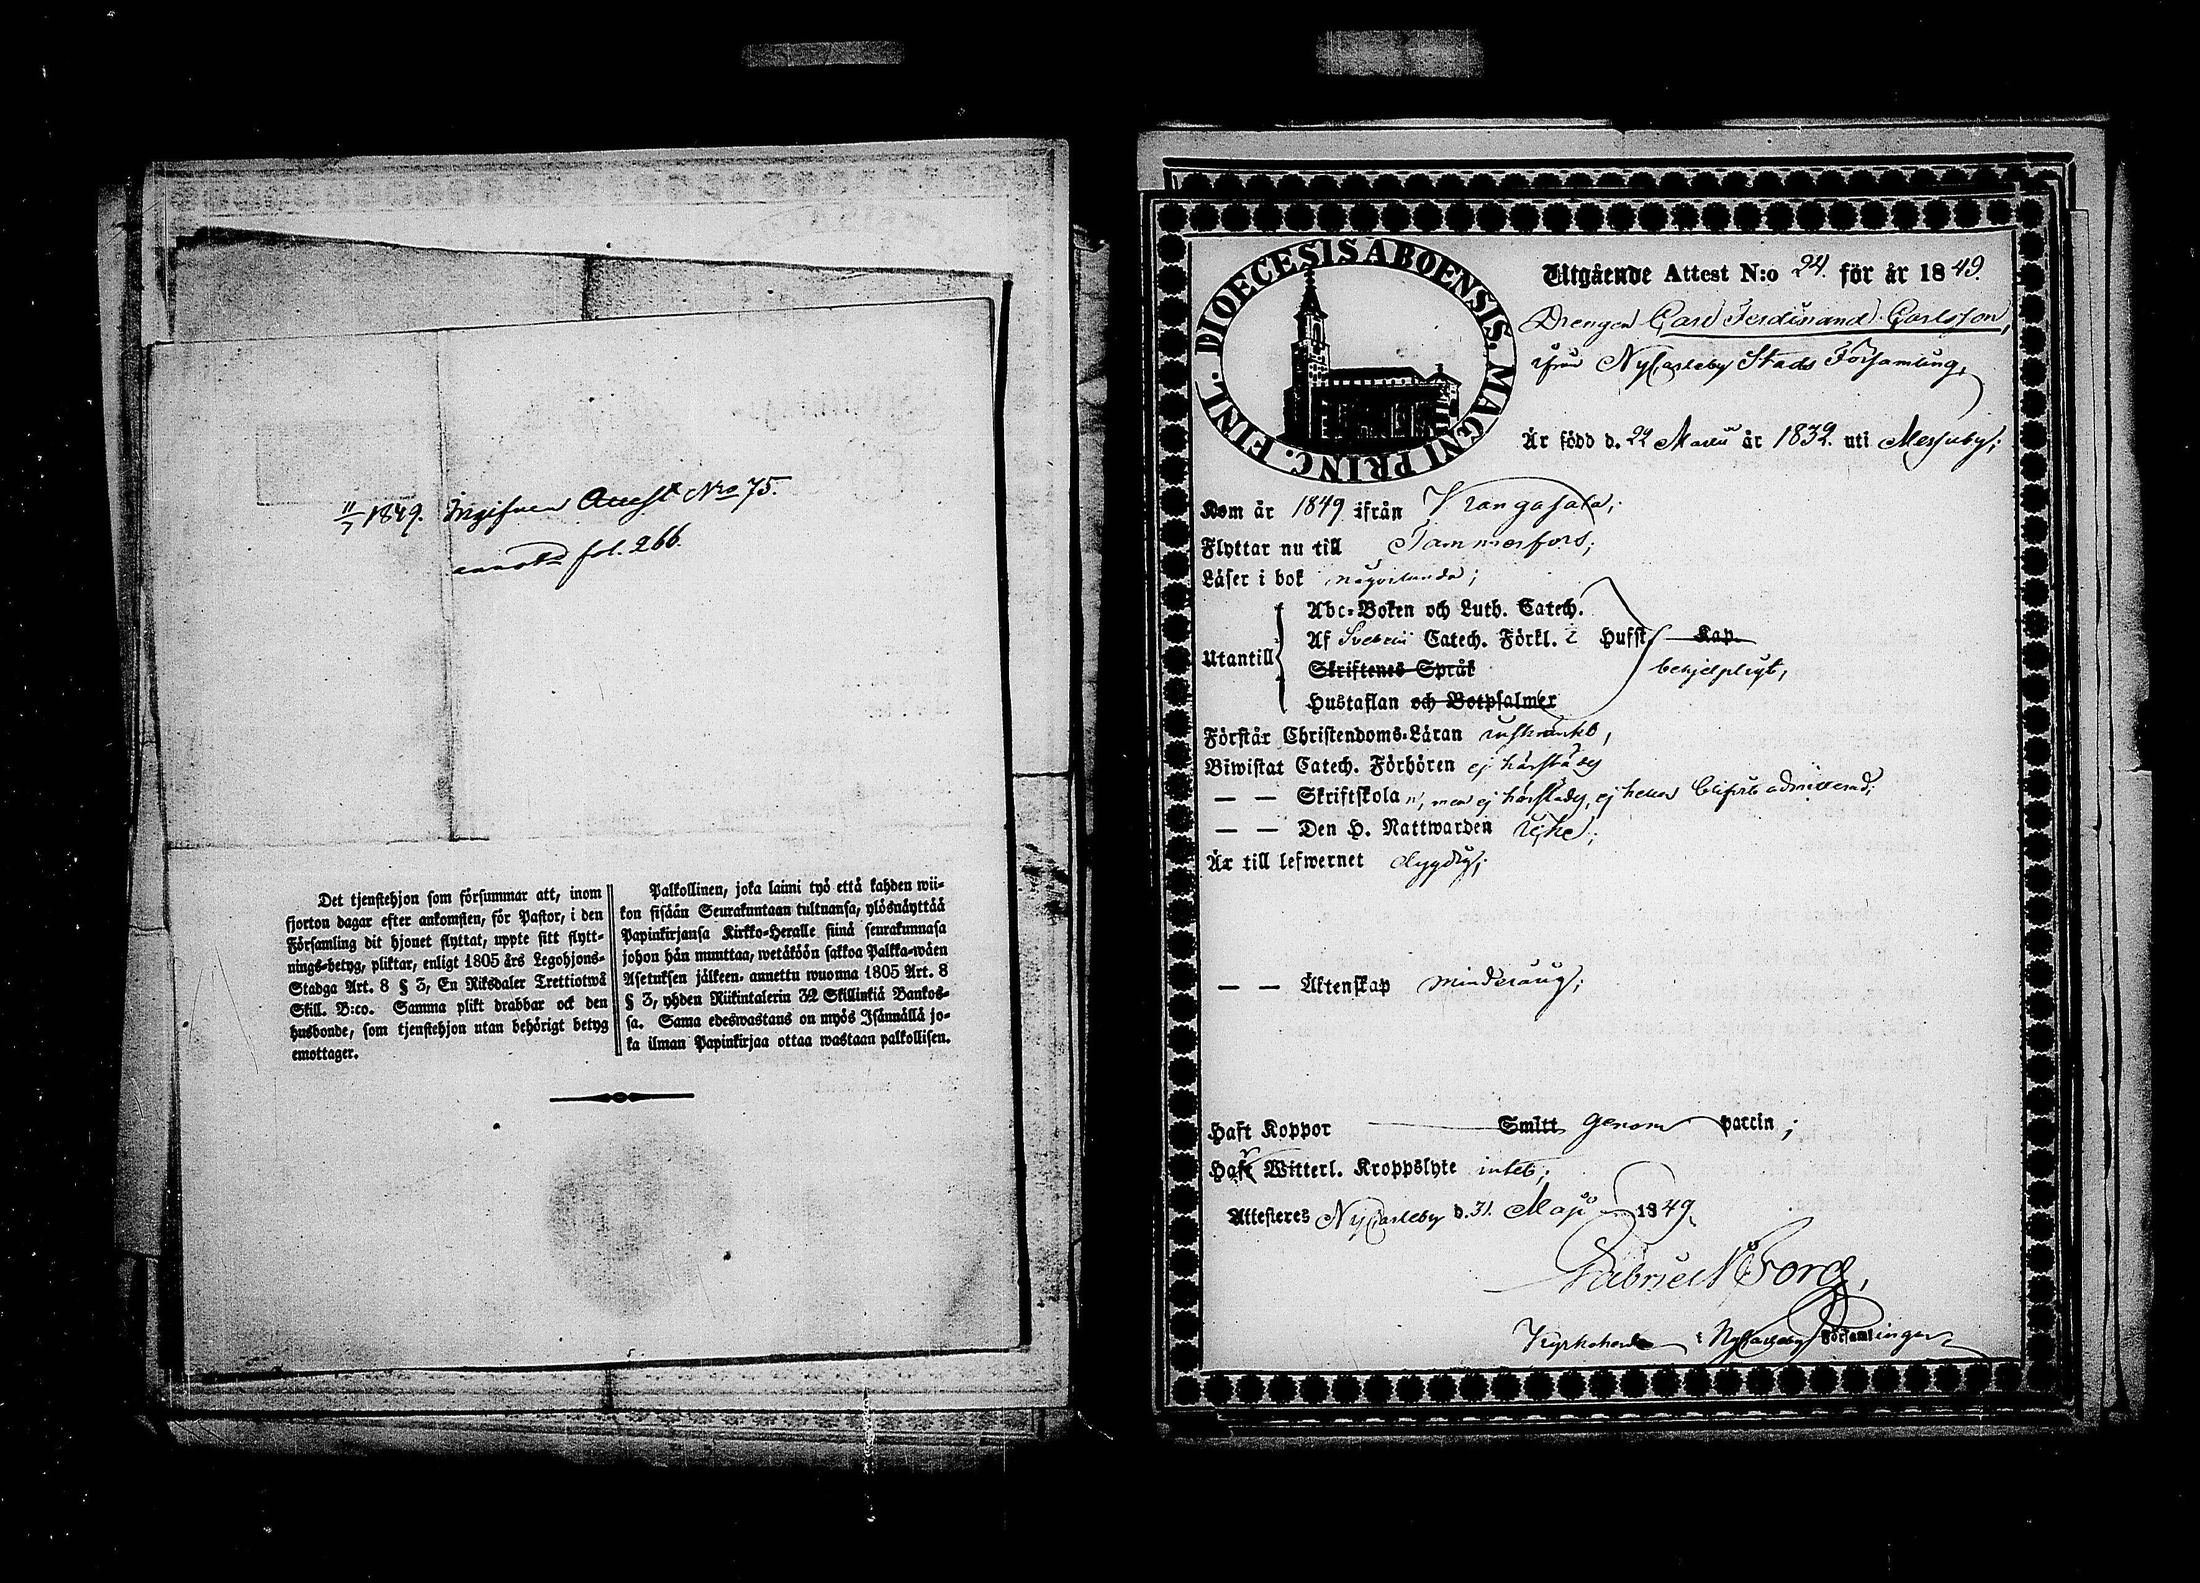 11/7 1849. Ingifven Attest Nro 75.
annot. fol. 266.
Det tjenstehjon som försummar att, inom
fjorton dagar efter ankomsten, för Pastor, i den
Församling dit hjonet flyttat, uppte sitt flytt-
nings-betyg, pliktar, enligt 1805 års Legohjons-
Stadga Art. 8 § 3, En Riksdaler Trettiotwå
Skill. B:co. Samma plikt drabbar ock den
husbonde, som tjenstehjon utan behörigt betyg
emottager.
Palkollinen, joka laimi työ että kahden wii-
kon sisään Seurakuntaan tultuansa, ylösnäyttää
Papinkirjansa Kirkko-Heralle siinä seurakunnasa
johon hän muuttaa, wetäköön sakkoa Palkka-wäen
Asetuksen jälkeen annettu wuonna 1805 Art. 8
§ 3, yhden Riikintalerin 32 Skillinkiä Bankos-
sa. Sama edeswastaus on myös Isännällä jo-
ka ilman Papinkirjaa ottaa wastaan palkollisen.
DIOECESIS ABOENSIS. MAGNI PRINC. FINL.
Utgående Attest N:o 24. för år 1849.
Drengen Carl Ferdinand Carlsson,
ifrån NyCarleby Stads Församling,
Är född d. 22 Martii år 1832. uti Messuby;
Kom år 1849 ifrån Kangasala;
Flyttar nu till Tammerfors;
Läser i bok någorlunda;
Utantill
Abc-Boken och Luth. Catech.
Af Svebelii Catech. Förkl. 2 Hufst. Kap.
Skriftenes Språk behjelpligt,
Hustaflan och Botpsalmer
Förstår Christendoms-Läran inskränkt,
Biwistat Catech. Förhören ej härstädes
— — Skriftskola men ej härstädes, ej heller blifvit admitterad;
— — Den H. Nattwarden icke;
Är till lefwernet dygdig;
— — Äktenskap minderårig;
Haft Koppor Smitt genom vaccin;
Haft Witterl. Kroppslyte intet;
Attesteres NyCarleby d. 31. Maji 1849.
Gabriel Borg,
Kyrkoherde i NyCarleby Församlingar